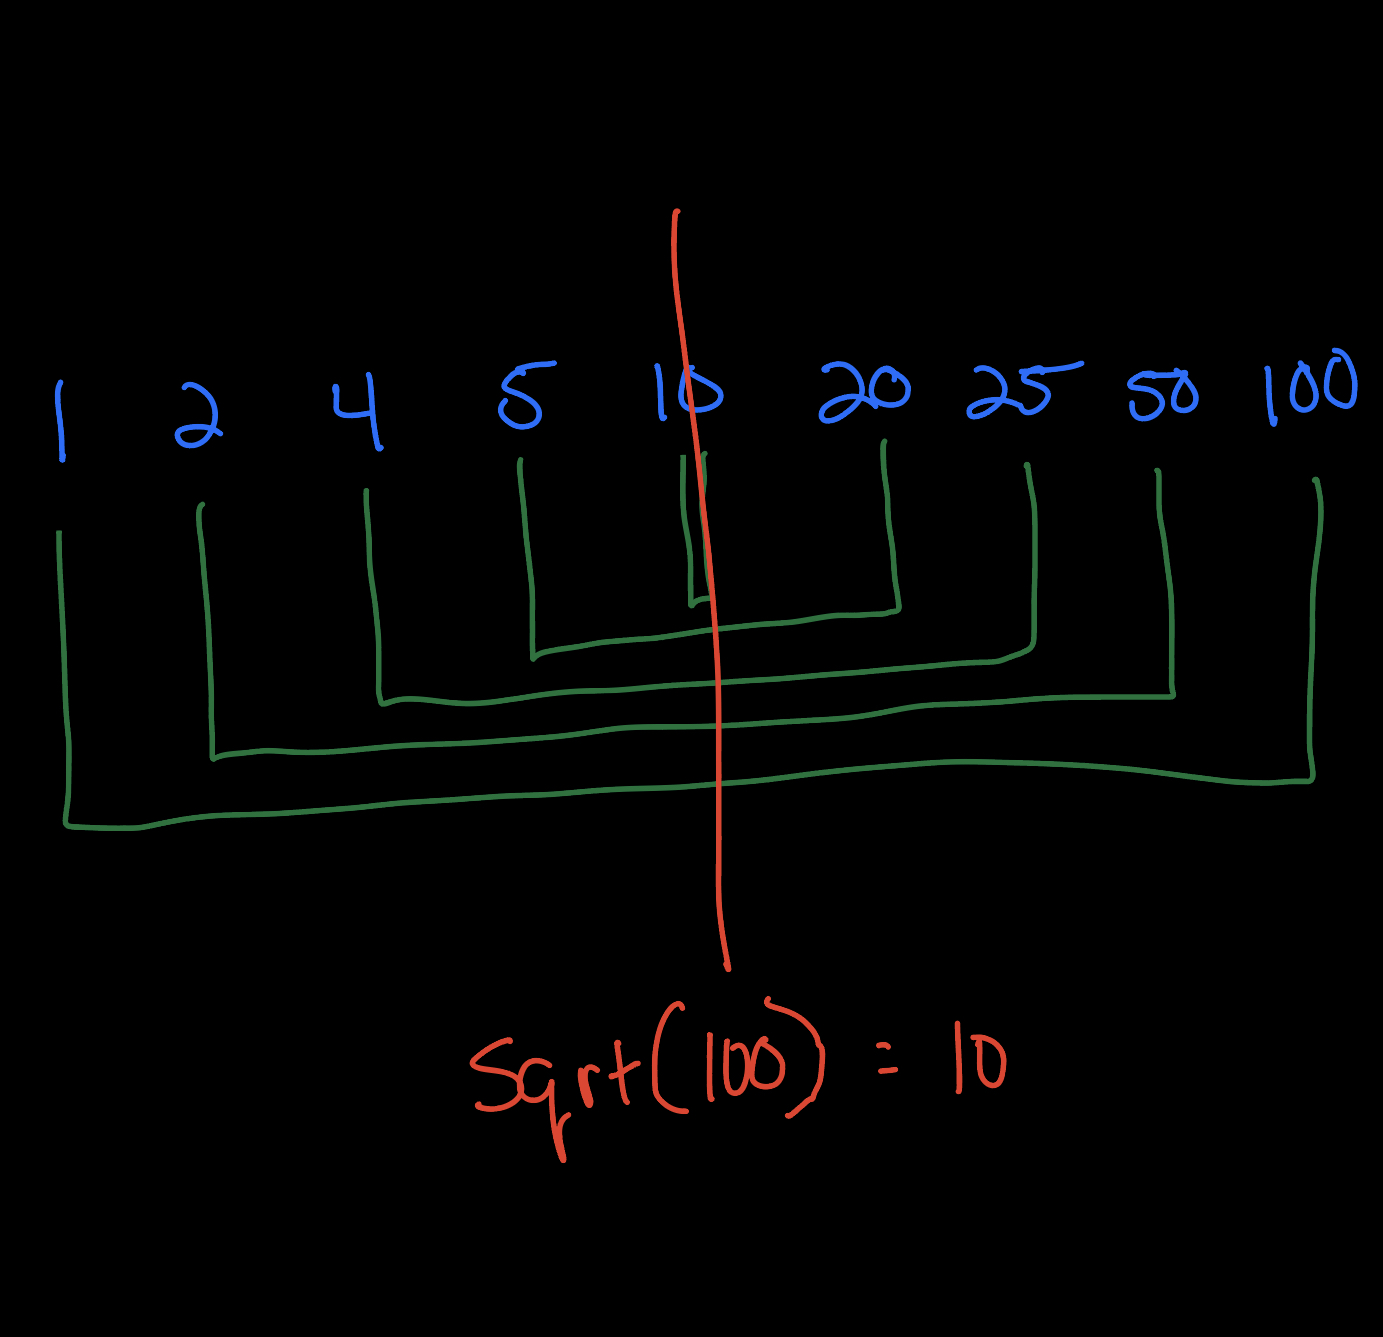 1 2 4 5 10 20 25 50 100
Sqrt(100) = 10